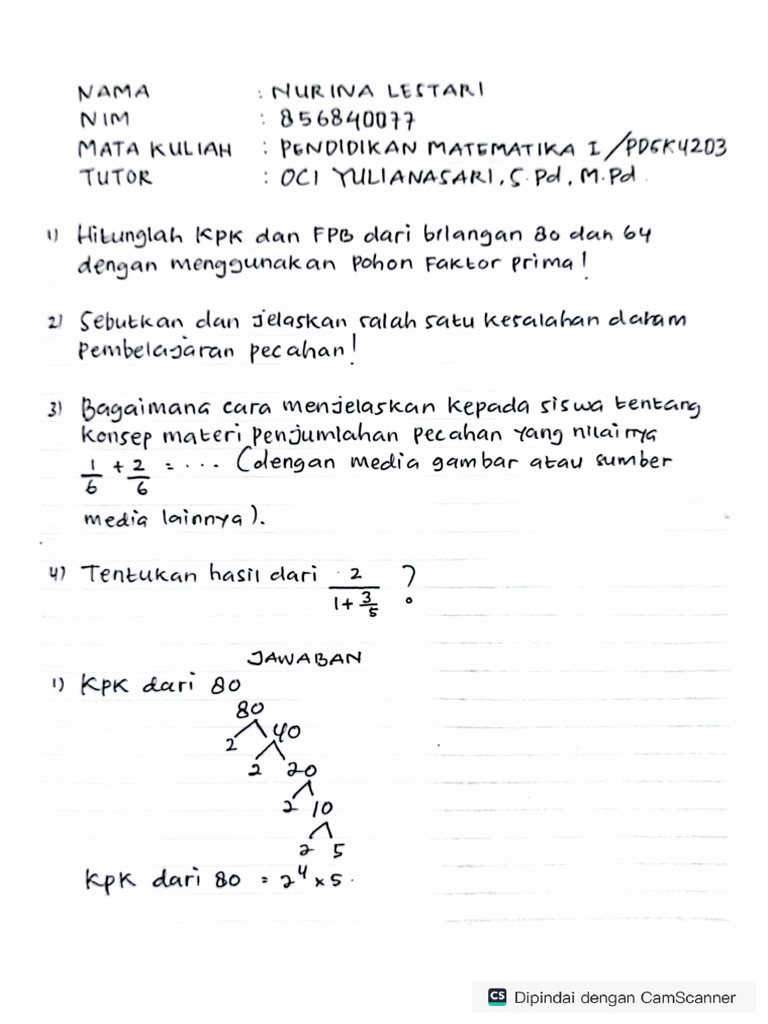 NAMA : NURINA LESTARI
NIM : 856840077
MATA KULIAH : PENDIDIKAN MATEMATIKA I/PDGK4203
TUTOR : OCI YULIANASARI, S.Pd, M.Pd.
1) Hitunglah KPK dan FPB dari bilangan 80 dan 64
dengan menggunakan Pohon Faktor prima!
2) Sebutkan dan jelaskan salah satu kesalahan dalam
Pembelajaran pecahan!
3) Bagaimana cara menjelaskan kepada siswa tentang
konsep materi penjumlahan pecahan yang nilainya
1/6 + 2/6 = ... (dengan media gambar atau sumber
media lainnya).
4) Tentukan hasil dari 2/(1+3/5) ?
JAWABAN
1) KPK dari 80
80
2 40
2 20
2 10
2 5
KPK dari 80 = 2⁴ x 5.
CS Dipindai dengan CamScanner